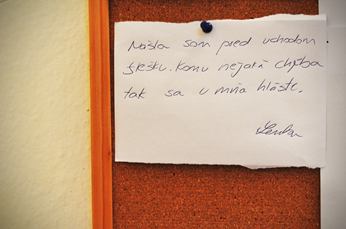 Našla som pred vchodom
fľešku. Komu nejaká chýba
tak sa u mňa hláste.
Lenka